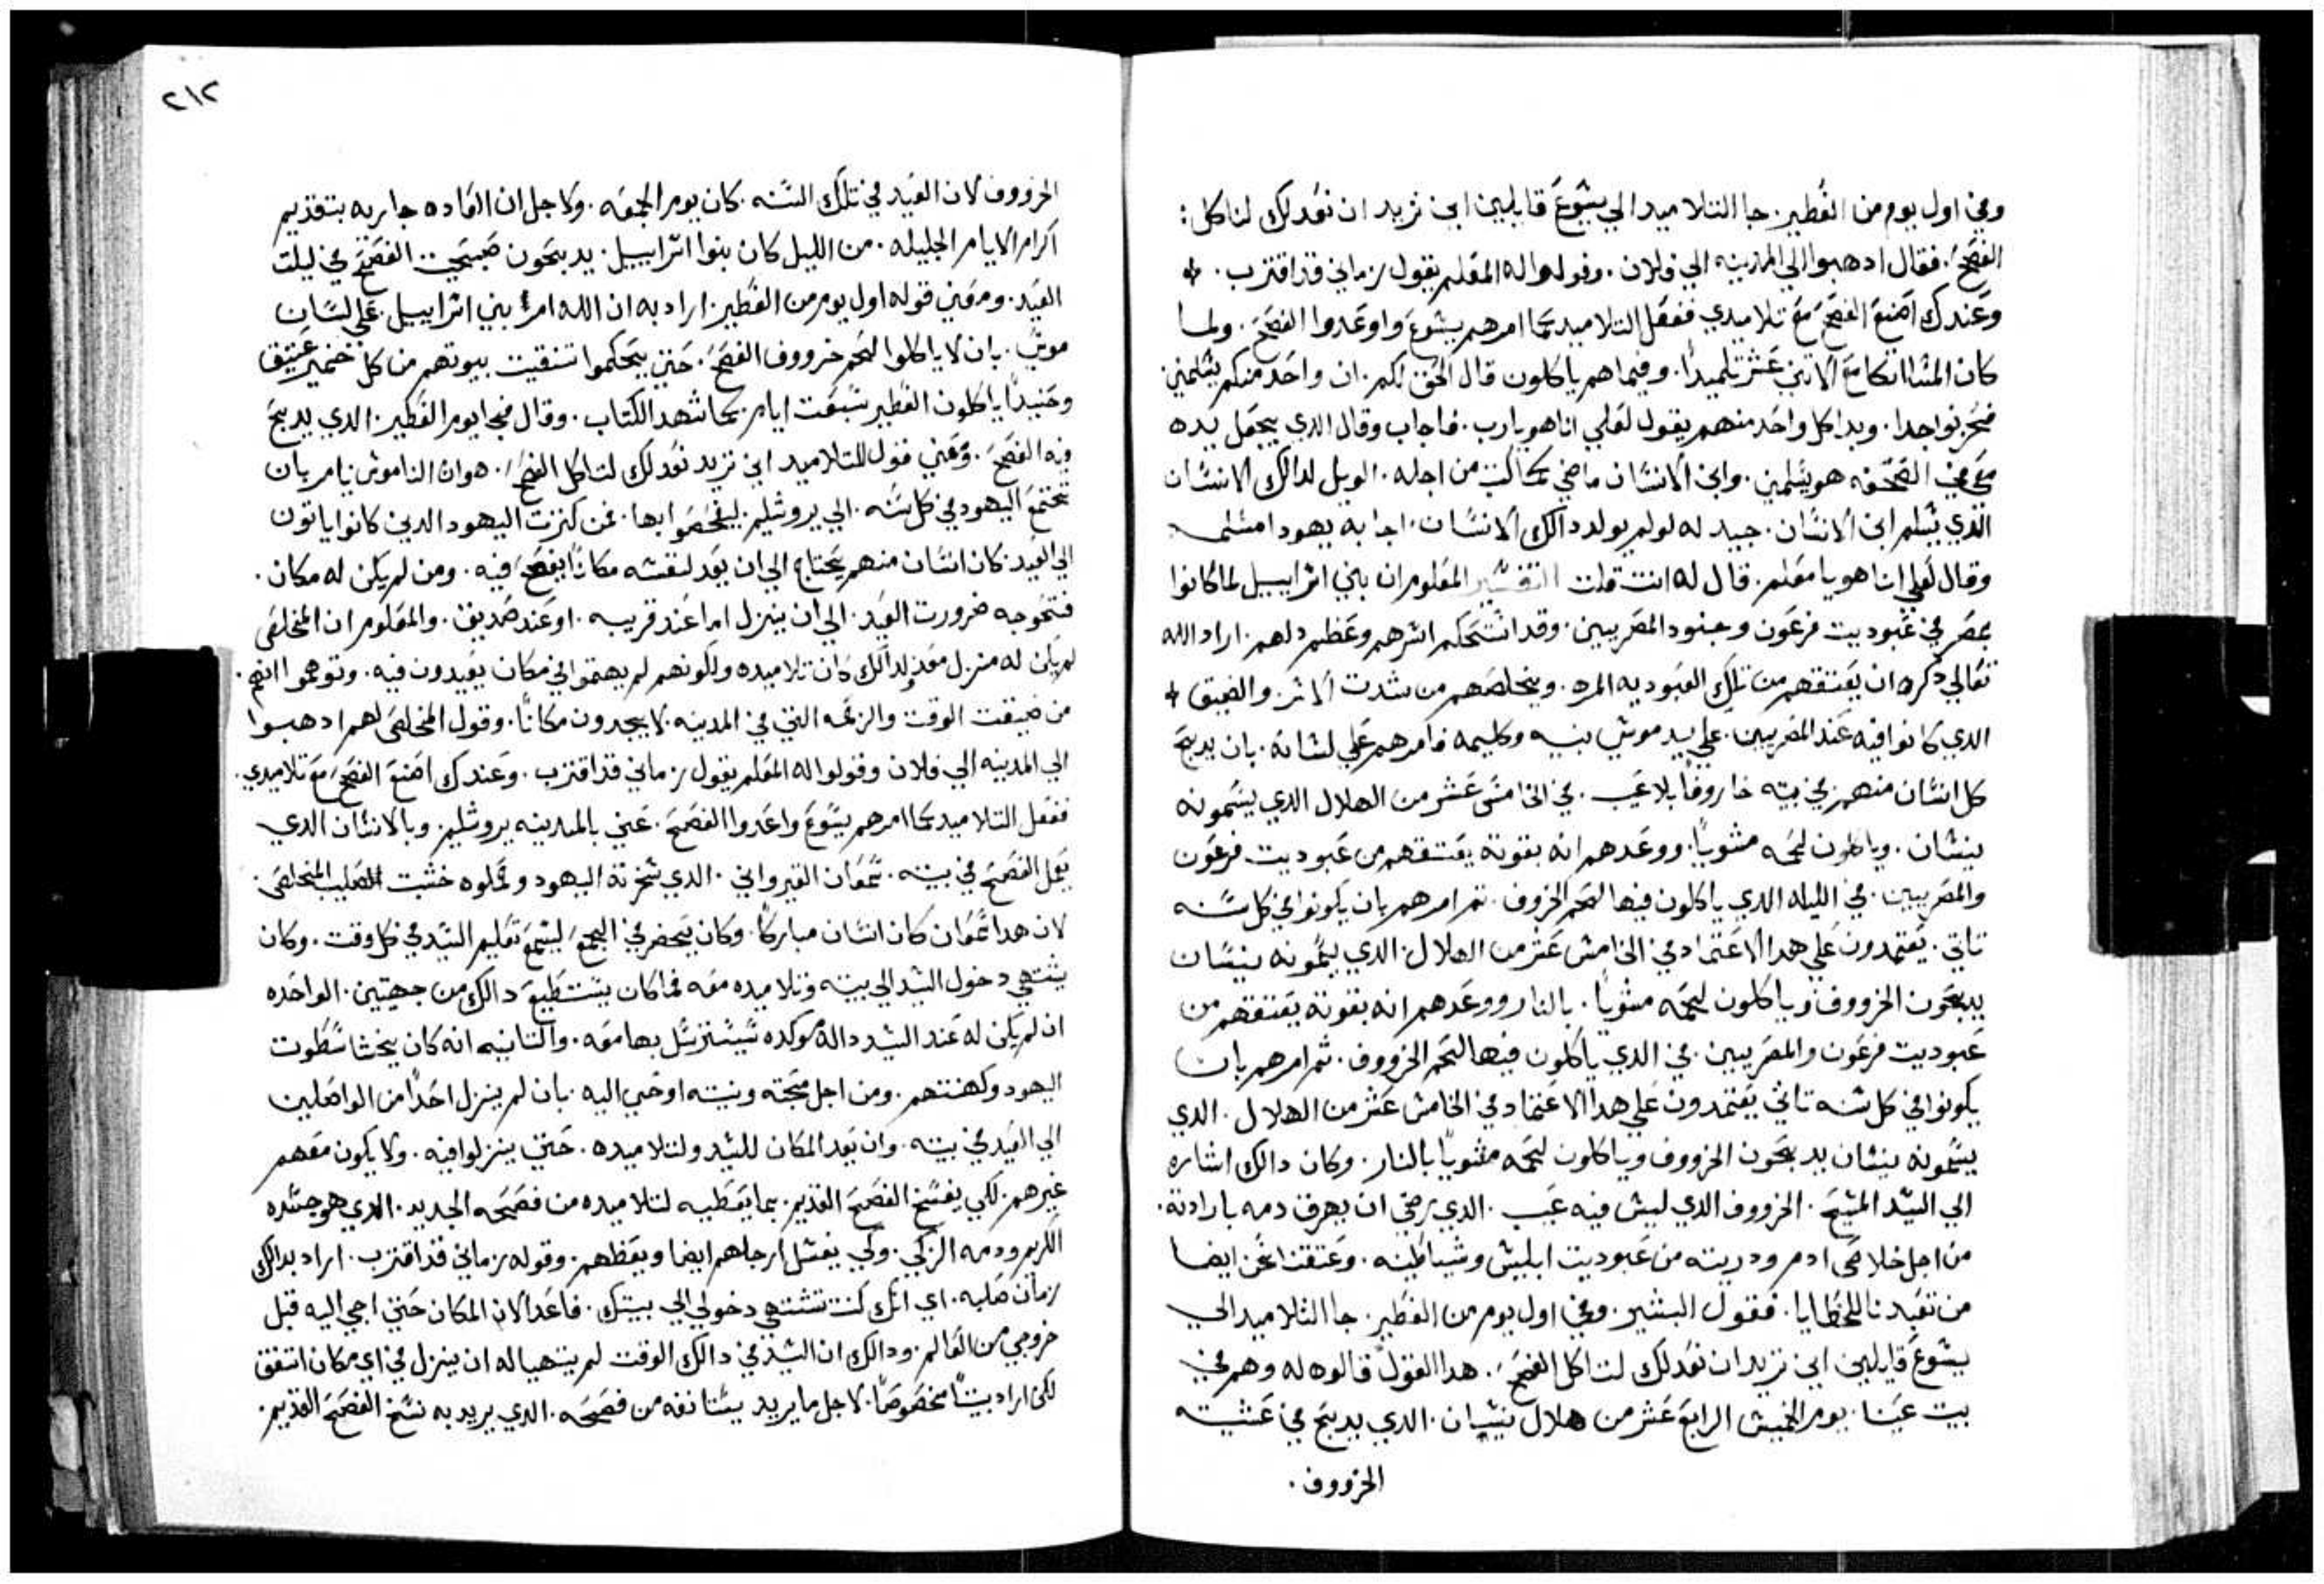 وفي اول يوم من الفطير. جا التلاميد الي يشوع قايلين اين تريد ان نعد لك لتاكل:
الفصح. فقال ادهبوا الي المدينه الي فلان. وقولوا له المعلم يقول زماني قد اقترب.
وعندك اصنع الفصح مع تلاميدي ففعل التلاميد كما امرهم يشوع واوعدوا الفصح. ولما
كان المسا اتكا مع الاتني عشر تلميدا. وفيما هم ياكلون قال الحق لكم. ان واحد منكم يسلمني
فحزنوا جدا. وبدا كل واحد منهم يقول لعلي انا هو يارب. فاجاب وقال الدي يجعل يده
معي في الصحفه هو يسلمني. وابن الانسان ماضي كما كتب من اجله. الويل لدالك الانسان
الدي يسلم ابن الانسان. جيد له لو لم يولد دالك الانسان. اجابه يهودا مسلمه
وقال لعلي انا هو يا معلم. قال له انت قلت التفسير المعلوم ان بني اسراييل لما كانوا
بمصر في عبوديت فرعون وجنود المصريين. وقد استحكم اسرهم وعظم دلهم. اراد الله
تعالي دكره ان يعتقهم من تلك العبوديه المره. ويخلصهم من شدت الاسر والضيق
الدي كانوا فيه عند المصريين. علي يد موسي نبيه وكليمه فامرهم علي لسانه. بان يدبح
كل انسان منهم في بيته خاروفا بلا عيب. في الخامس عشر من الهلال الدي يسمونه
نيسان. وياكلون لحمه مشويا. ووعدهم انه بقوته يعتقهم من عبوديت فرعون
والمصريين. في الليله الدي ياكلون فيها لحم الخروف. تم امرهم بان يكونوا في كل سنه
تاتي. يعتمدون علي هدا الاعتماد في الخامس عشر من الهلال. الدي يسمونه نيسان
يدبحون الخرووف وياكلون لحمه مشويا. بالنار ووعدهم انه بقوته يعتقهم من
عبوديت فرعون والمصريين. في الدي ياكلون فيها لحم الخرووف. ثم امرهم بان
يكونوا في كل سنه تاتي يعتمدون علي هدا الاعتماد في الخامس عشر من الهلال. الدي
يسمونه نيسان يدبحون الخرووف وياكلون لحمه مشويا بالنار. وكان دالك اشاره
الي السيد المسيح. الخرووف الدي ليس فيه عيب. الدي رضي ان يهرق دمه بارادته.
من اجل خلاص ادم ودريته من عبوديت ابليس وشياطينه. وعتقنا نحن ايضا
من تعبدنا للخطايا. فقول البشير. وفي اول يوم من الفطير. جا التلاميد الي
يشوع قايلين اين تريد ان نعد لك لتاكل الفصح. هدا القول قالوه له وهم في
بيت عنيا. يوم الخميس الرابع عشر من هلال نيسان. الدي يدبح في عشيته
الخرووف.
٢١٢
الخرووف لان العيد في تلك السنه. كان يوم الجمعه. ولاجل ان العاده جاريه بتقديم
اكرام الايام الجليله. من الليل كان بنوا اسراييل. يدبحون دبيحت الفصح في ليلت
العيد. ومعني قوله اول يوم من الفطير. اراد به ان الله امر بني اسراييل. علي لسان
موسي. بان لا ياكلوا لحم خرووف الفصح. حتي يحكموا تنقيت بيوتهم من كل خمير عتيق
وحينيدا ياكلون الفطير سبعت ايام. كما شهد الكتاب. وقال فجا يوم الفطير. الدي يدبح
فيه الفصح. ومعني قول التلاميد اين تريد نعد لك لتاكل الفصح. هو ان الناموس يامر بان
تجتمع اليهود في كل سنه. الي يروشليم. ليفصحوا بها. فمن كترت اليهود الدين كانوا ياتون
الي العيد. كان انسان منهم يحتاج الي ان يعد لنفسه مكانا يفصح فيه. ومن لم يكن له مكان.
فتحوجه ضرورت العيد. الي ان ينزل اما عند قريبه. او عند صديق. والمعلوم ان المخلص
لم يكن له منزل معد لدالك كان تلاميده ولكونهم لم يهتموا في مكان يعيدون فيه. وتوهموا انهم.
من ضيقت الوقت والزحمه التي في المدينه. لا يجدون مكانا. وقول المخلص لهم ادهبوا
الي المدينه الي فلان وقولوا له المعلم يقول زماني قد اقترب. وعندك اصنع الفصح مع تلاميدي.
ففعل التلاميد كما امرهم يسوع واعدوا الفصح. عني بالمدينه يروشليم. وبالانسان الدي
يعمل الفصح في بيته. سمعان القيرواني. الدي سخرته اليهود وحملوه خشبت الصليب المخلص.
لان هدا سمعان كان انسان مباركا. وكان يحضر في المجمع. ليسمع تعليم السيد في كل وقت. وكان
يشتهي دخول السيد الي بيته وتلاميده معه فما كان يستطيع دالك من جهتين. الواحده
ان لم يكن له عند السيد دالة موكده يسترسل بها معه. والتانيه انه كان يخشا سطوت
اليهود وكهنتهم. ومن اجل محبته ونيته اوحي اليه. بان لم ينزل احدا من الواصلين
الي العيد في بيته. وان يعد المكان للسيد ولتلاميده. حتي ينزلوا فيه. ولا يكون معهم
غيرهم. لكي يفسخ الفصح القديم. بما يعطيه لتلاميده من فصحه الجديد. الدي هو جسده
الكريم ودمه الزكي. ولكي يغسل ارجلهم ايضا ويعظهم. وقوله زماني قد اقترب. اراد بدالك
زمان صلبه. اي انك كنت تشتهي دخولي الي بيتك. فاعد الان المكان حتي اجي اليه قبل
خروجي من العالم. ودالك ان السيد في دالك الوقت لم يتهيا له ان ينزل في اي مكان اتفق
لكن اراد بيتا مخصوصا. لاجل ما يريد يستانفه من فصحه. الدي يريد به نسخ الفصح القديم.